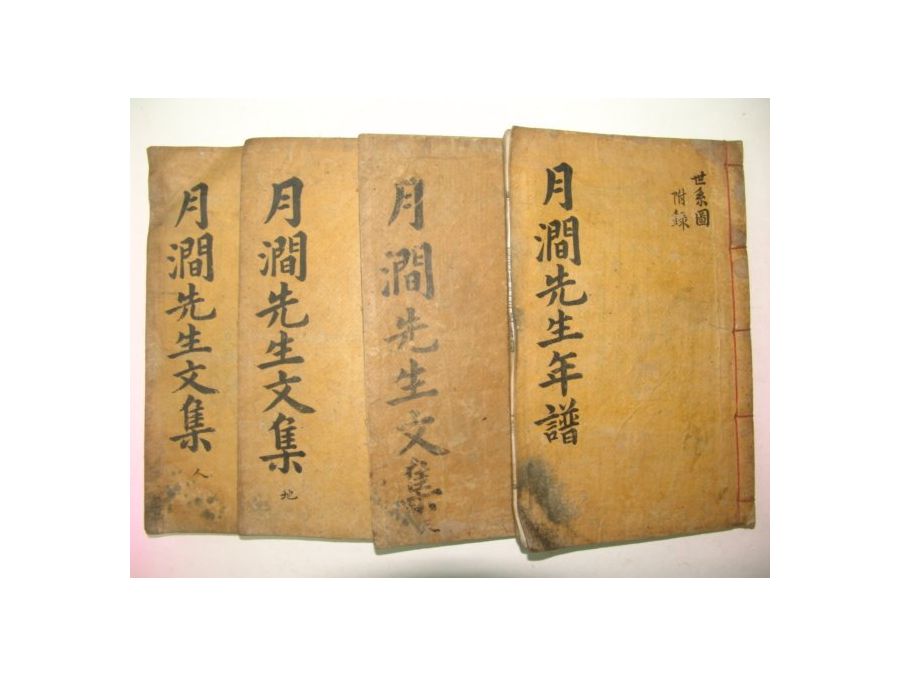 世系圖
附錄
月澗先生年譜
月澗先生文集
月澗先生文集
地
月澗先生文集
人